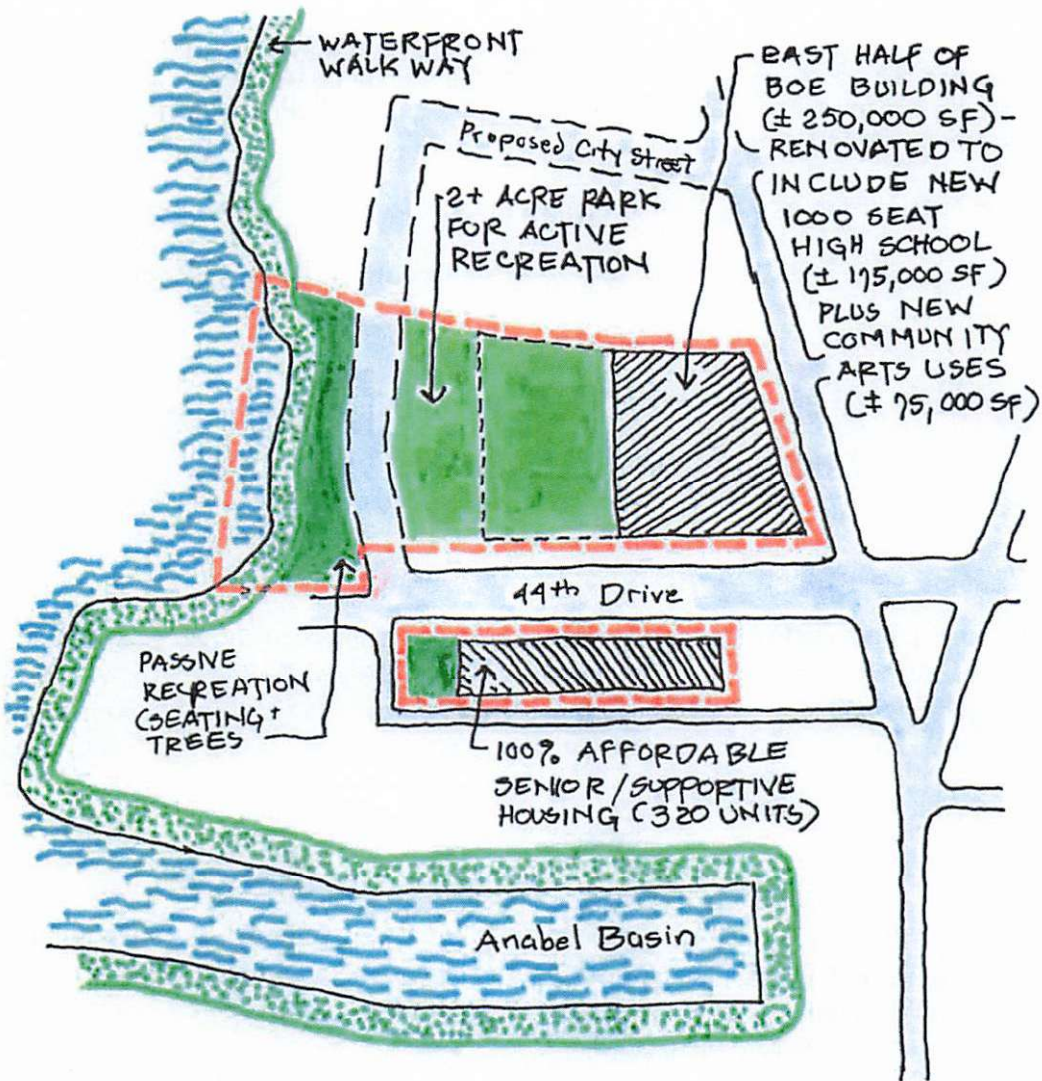 WATERFRONT
WALK WAY
EAST HALF OF
BOE BUILDING
(± 250,000 SF) -
RENOVATED TO
INCLUDE NEW
1000 SEAT
HIGH SCHOOL
(± 175,000 SF)
PLUS NEW
COMMUNITY
ARTS USES
(± 75,000 SF)
Proposed City Street
2+ ACRE PARK
FOR ACTIVE
RECREATION
44th Drive
PASSIVE
RECREATION
(SEATING +
TREES
100% AFFORDABLE
SENIOR/SUPPORTIVE
HOUSING (320 UNITS)
Anabel Basin